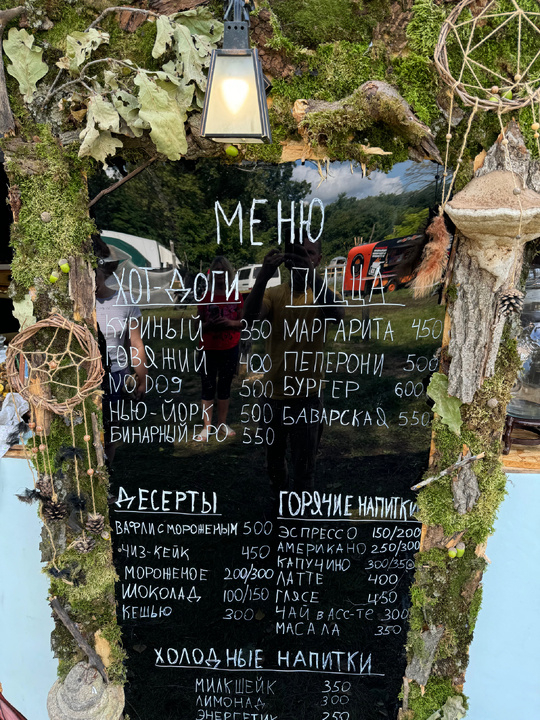 МЕНЮ
ХОТ-ДОГИ
КУРИНЫЙ 350
ГОВЯЖИЙ 400
NO DOG 500
НЬЮ-ЙОРК 500
БИНАРНЫЙ БРО 550
ПИЦЦА
МАРГАРИТА 450
ПЕПЕРОНИ 500
БУРГЕР 600
БАВАРСКАЯ 550
ДЕСЕРТЫ
ВАФЛИ С МОРОЖЕНЫМ 500
ЧИЗ-КЕЙК 450
МОРОЖЕНОЕ 200/300
ШОКОЛАД 100/150
КЕШЬЮ 300
ГОРЯЧИЕ НАПИТКИ
ЭСПРЕССО 150/200
АМЕРИКАНО 250/300
КАПУЧИНО 300/350
ЛАТТЕ 400
ГЛЯСЕ 450
ЧАЙ В АСС-ТЕ 300
МАСАЛА 350
ХОЛОДНЫЕ НАПИТКИ
МИЛКШЕЙК 350
ЛИМОНАД 300
ЭНЕРГЕТИК 250